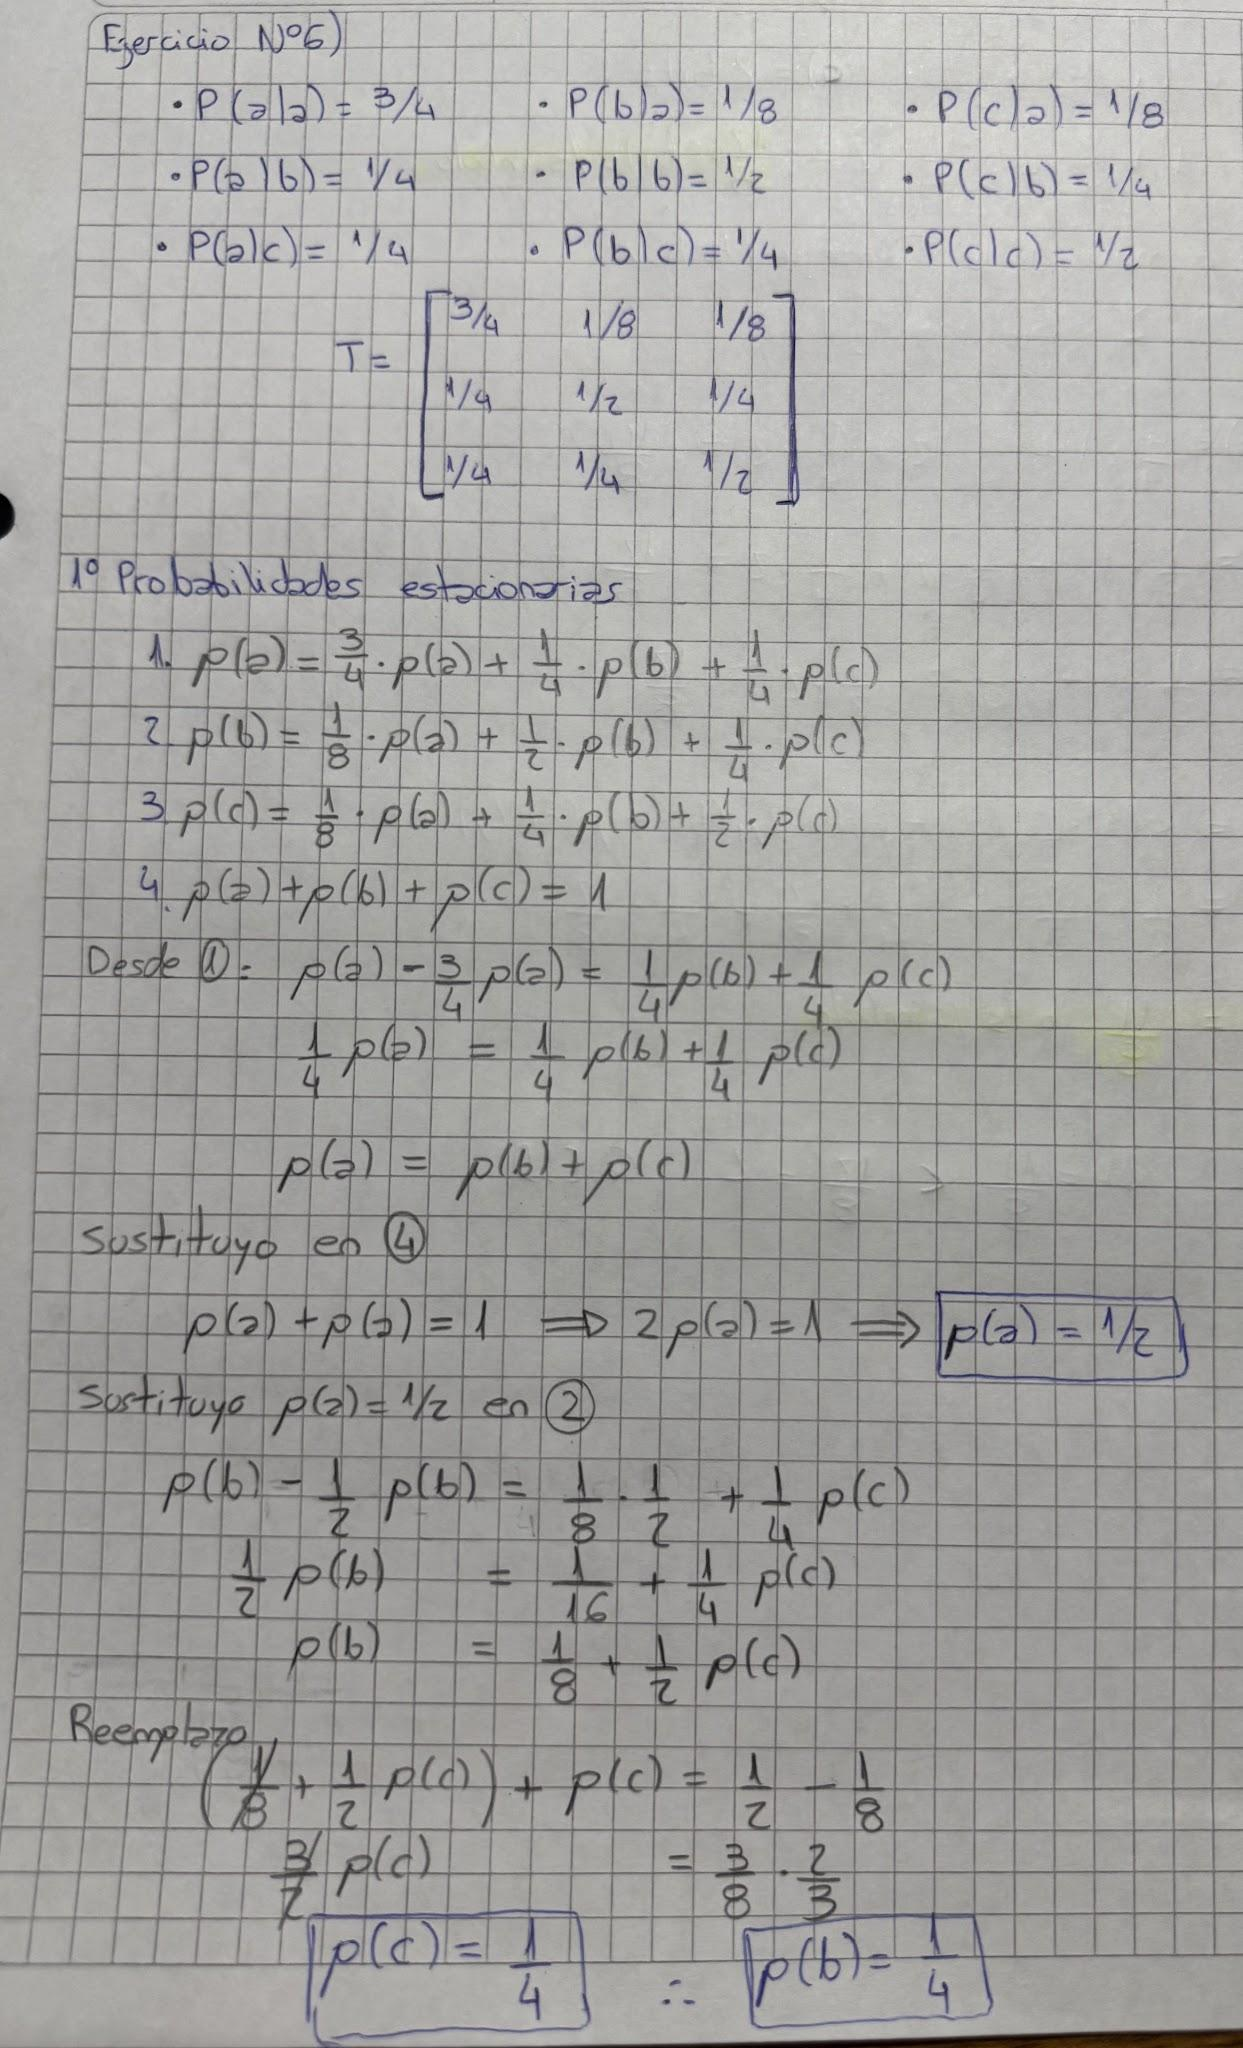 Ejercicio Nº6)
• P(a|a) = 3/4 • P(b|a) = 1/8 • P(c|a) = 1/8
• P(a|b) = 1/4 • P(b|b) = 1/2 • P(c|b) = 1/4
• P(a|c) = 1/4 • P(b|c) = 1/4 • P(c|c) = 1/2
T = [3/4 1/8 1/8
1/4 1/2 1/4
1/4 1/4 1/2]
1º Probabilidades estacionarias
1. p(a) = 3/4 · p(a) + 1/4 · p(b) + 1/4 · p(c)
2 p(b) = 1/8 · p(a) + 1/2 · p(b) + 1/4 · p(c)
3 p(c) = 1/8 · p(a) + 1/4 · p(b) + 1/2 · p(c)
4. p(a) + p(b) + p(c) = 1
Desde ①: p(a) - 3/4 p(a) = 1/4 p(b) + 1/4 p(c)
1/4 p(a) = 1/4 p(b) + 1/4 p(c)
p(a) = p(b) + p(c)
Sustituyo en ④
p(a) + p(a) = 1 ⟹ 2 p(a) = 1 ⟹ p(a) = 1/2
Sustituyo p(a) = 1/2 en ②
p(b) - 1/2 p(b) = 1/8 · 1/2 + 1/4 p(c)
1/2 p(b) = 1/16 + 1/4 p(c)
p(b) = 1/8 + 1/2 p(c)
Reemplazo
(1/8 + 1/2 p(c)) + p(c) = 1/2 - 1/8
3/2 p(c) = 3/8 · 2/3
p(c) = 1/4 ∴ p(b) = 1/4